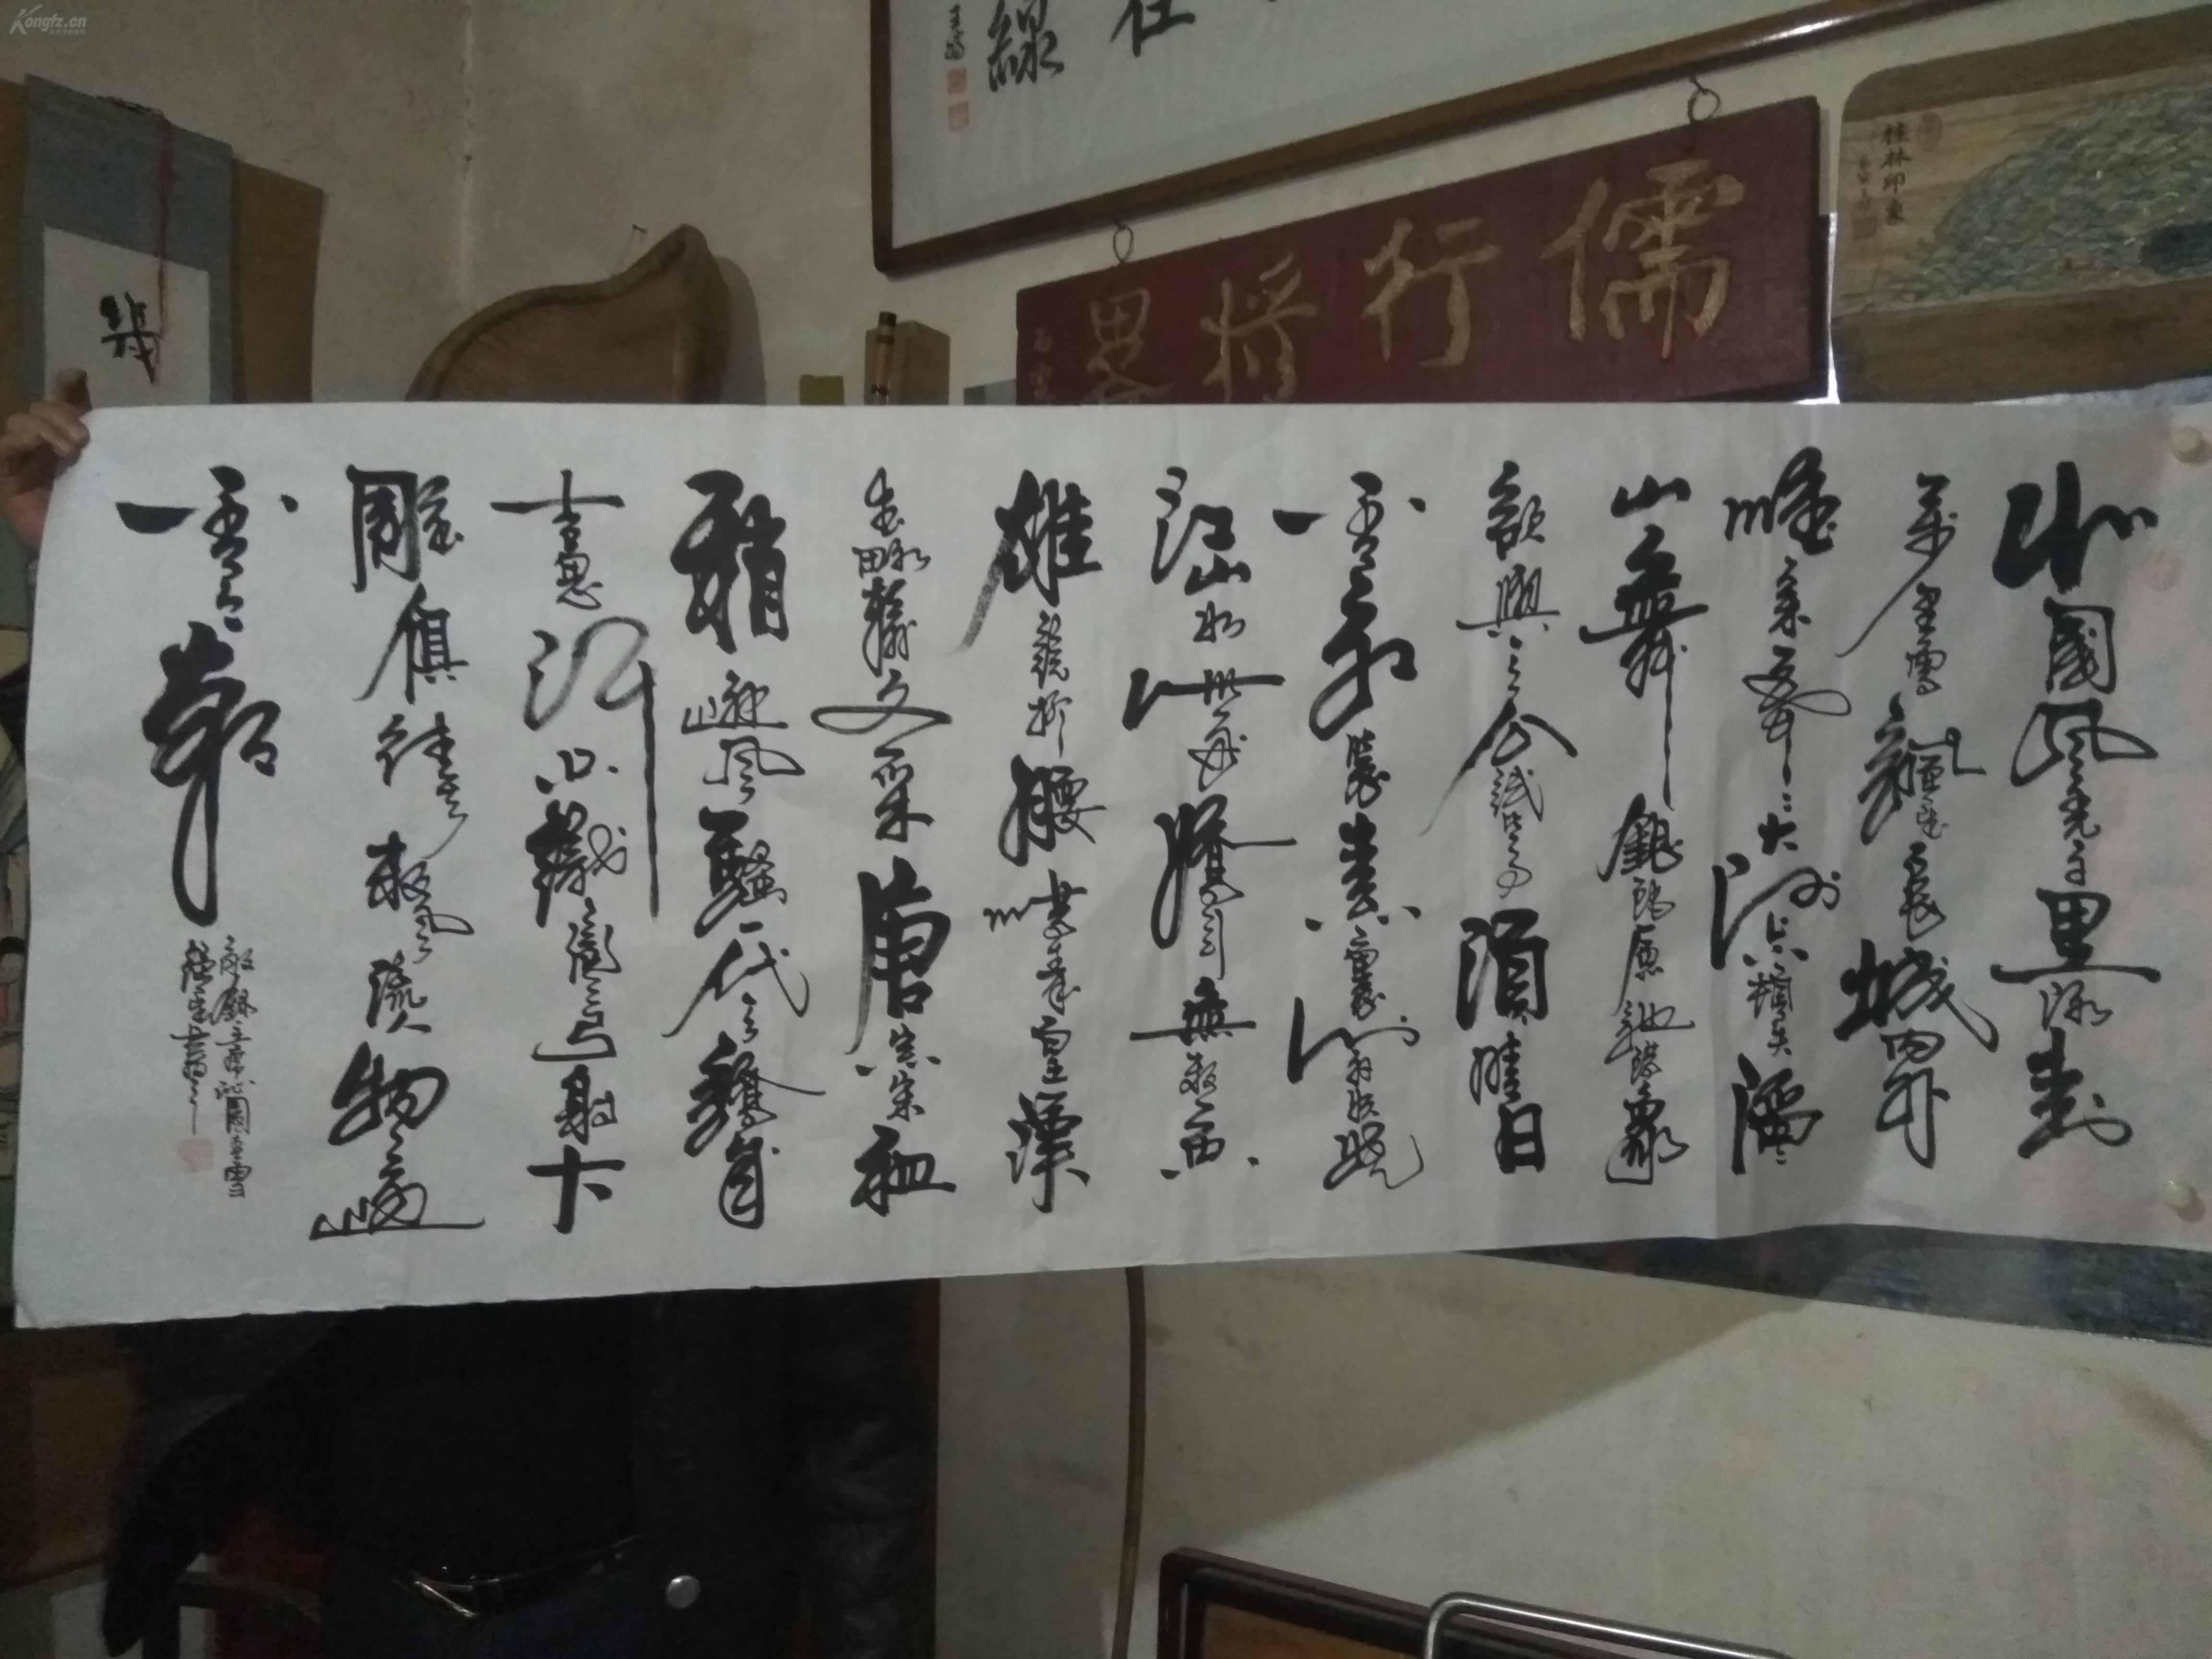 北國風光千里冰封
萬里雪飄望長城内外
惟余莽莽大河上下頓失滔滔
山舞銀蛇原馳蠟象
欲與天公試比高須晴日
看紅裝素裹分外妖嬈
江山如此多嬌引無數英
雄競折腰惜秦皇漢
武略輸文采唐宗宋祖
稍遜風騷一代天驕成
吉思汗只識彎弓射大
雕俱往矣數風流人物還
看今朝
敬錄主席沁園春雪
儒行將
桂林印象
幾
Kongfz.cn